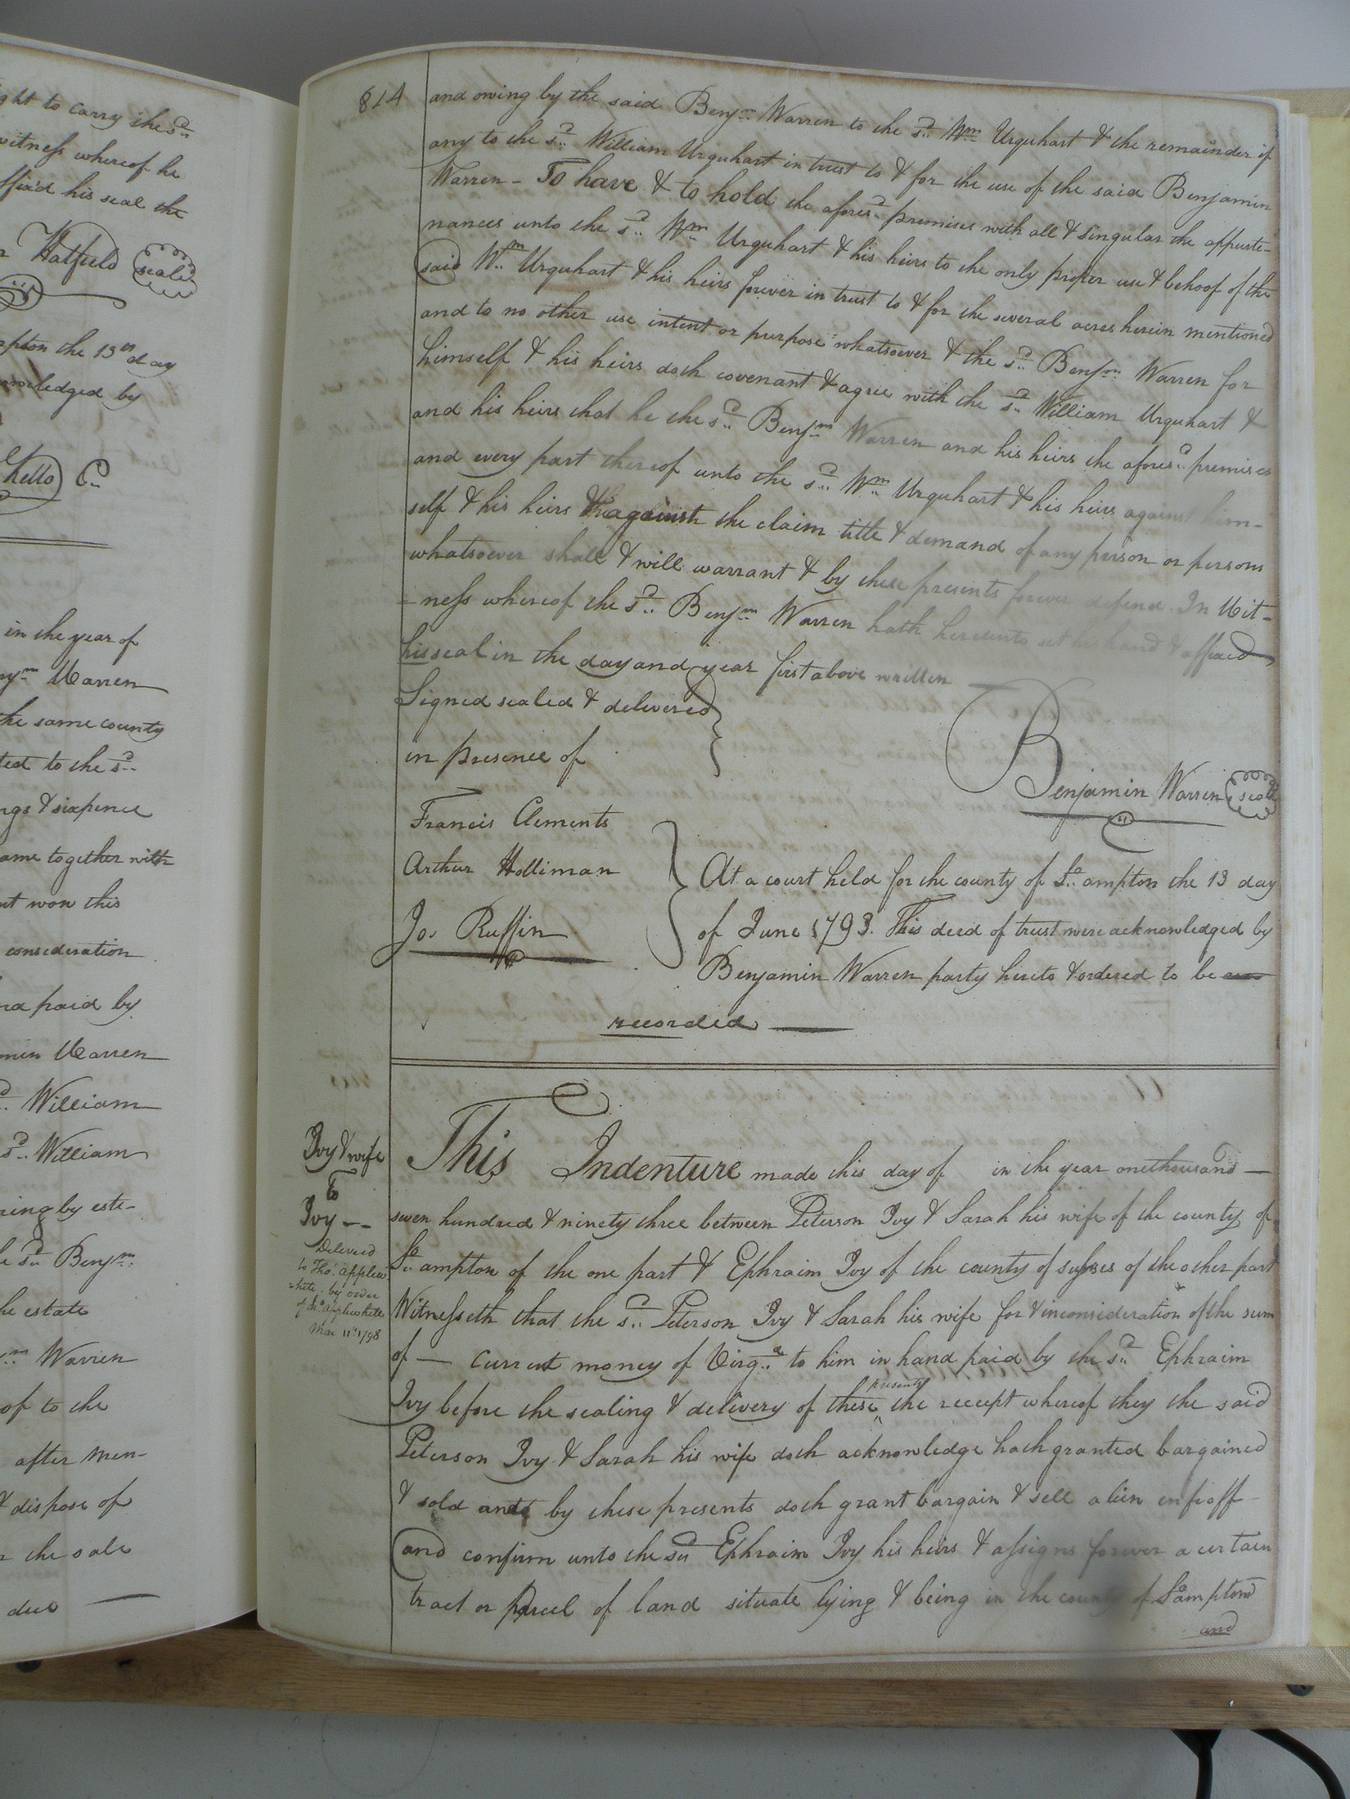 ght to carry the sd
witness whereof he
ffixd his seal the
Hatfield seal
mpton the 13th day
nowledged by
kello Cc
in the year of
nym Warren
the same county
ted to the sd
ngs & sixpence
ame together with
nt won this
consideration
nd paid by
min Warren
William
sd William
ring by este-
sd Benjm
he estate
m Warren
of to the
after men-
& dispose of
the sale
due
814
and owing by the said Benjm Warren to the sd Wm Urquhart & the remainder if
any to the sd William Urquhart in trust to & for the use of the said Benjamin
Warren - To have & to hold the aforesd premises with all & singular the appurte-
nances unto the sd Wm Urquhart & his heirs to the only proper use & behoof of the
said Wm Urquhart & his heirs forever in trust to & for the several acres herein mentioned
and to no other use intent or purpose whatsoever & the sd Benjm Warren for
himself & his heirs doth covenant & agree with the sd William Urquhart &
and his heirs that he the sd Benjm Warren and his heirs the aforesd premises
and every part thereof unto the sd Wm Urquhart & his heirs against him-
self & his heirs & against the claim title & demand of any person or persons
whatsoever shall & will warrant & by these presents forever defend In Wit-
-ness whereof the sd Benjm Warren hath hereunto set his hand & affixed
his seal in the day and year first above written
Signed sealed & delivered
in presence of
Benjamin Warren seal
Francis Clements
Arthur Holliman
Jos Ruffin
At a court held for the county of So.ampton the 13 day
of June 1793. This deed of trust were acknowledged by
Benjamin Warren party hereto & ordered to be
recorded
Ivy & wife
to
Ivy --
Delivered
to Thos Applew
white, by order
of Applewhite
Mar 11th 1798
This Indenture made this day of in the year one thousand
seven hundred & ninety three between Peterson Ivy & Sarah his wife of the county of
So.ampton of the one part & Ephraim Ivy of the county of sussex of the other part
Witnesseth that the sd Peterson Ivy & Sarah his wife for & in consideration of the sum
of — current money of Virga to him in hand paid by the sd Ephraim
Ivy before the sealing & delivery of these presents the receipt whereof they the said
Peterson Ivy & Sarah his wife doth acknowledge hath granted bargained
& sold and by these presents doth grant bargain & sell alien enfeoff
and confirm unto the sd Ephraim Ivy his heirs & assigns forever a certain
tract or parcel of land situate lying & being in the county of So.ampton
and